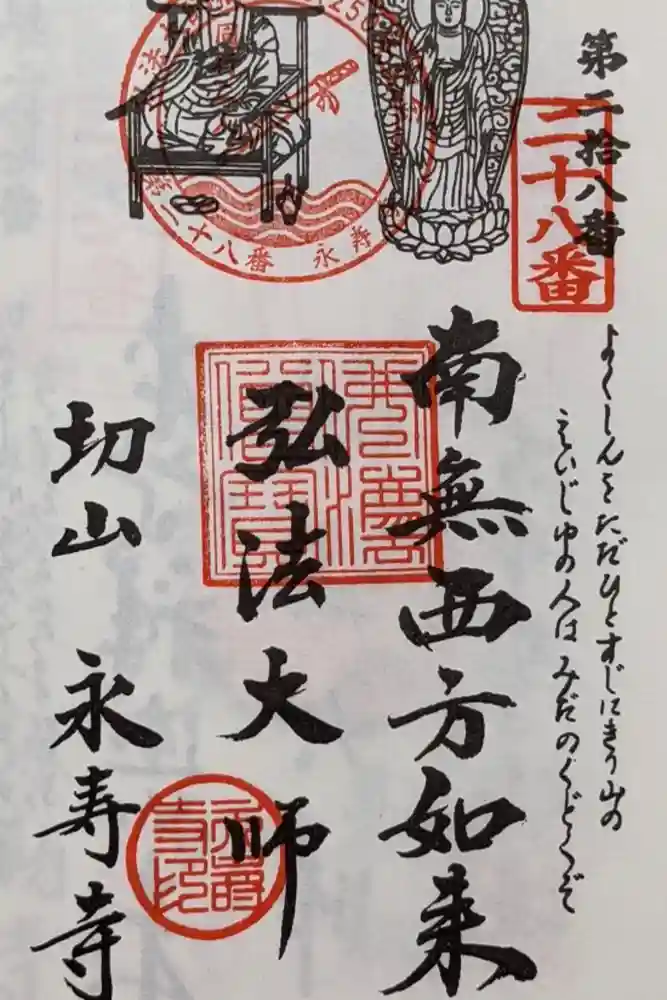 第二拾八番
二十八番
よくしんをただひとすじにきり山の
えいじゆの人はみだのくどくぞ
南無西方如来
弘法大師
切山 永寿寺
第二十八番 永寿
永寿寺印